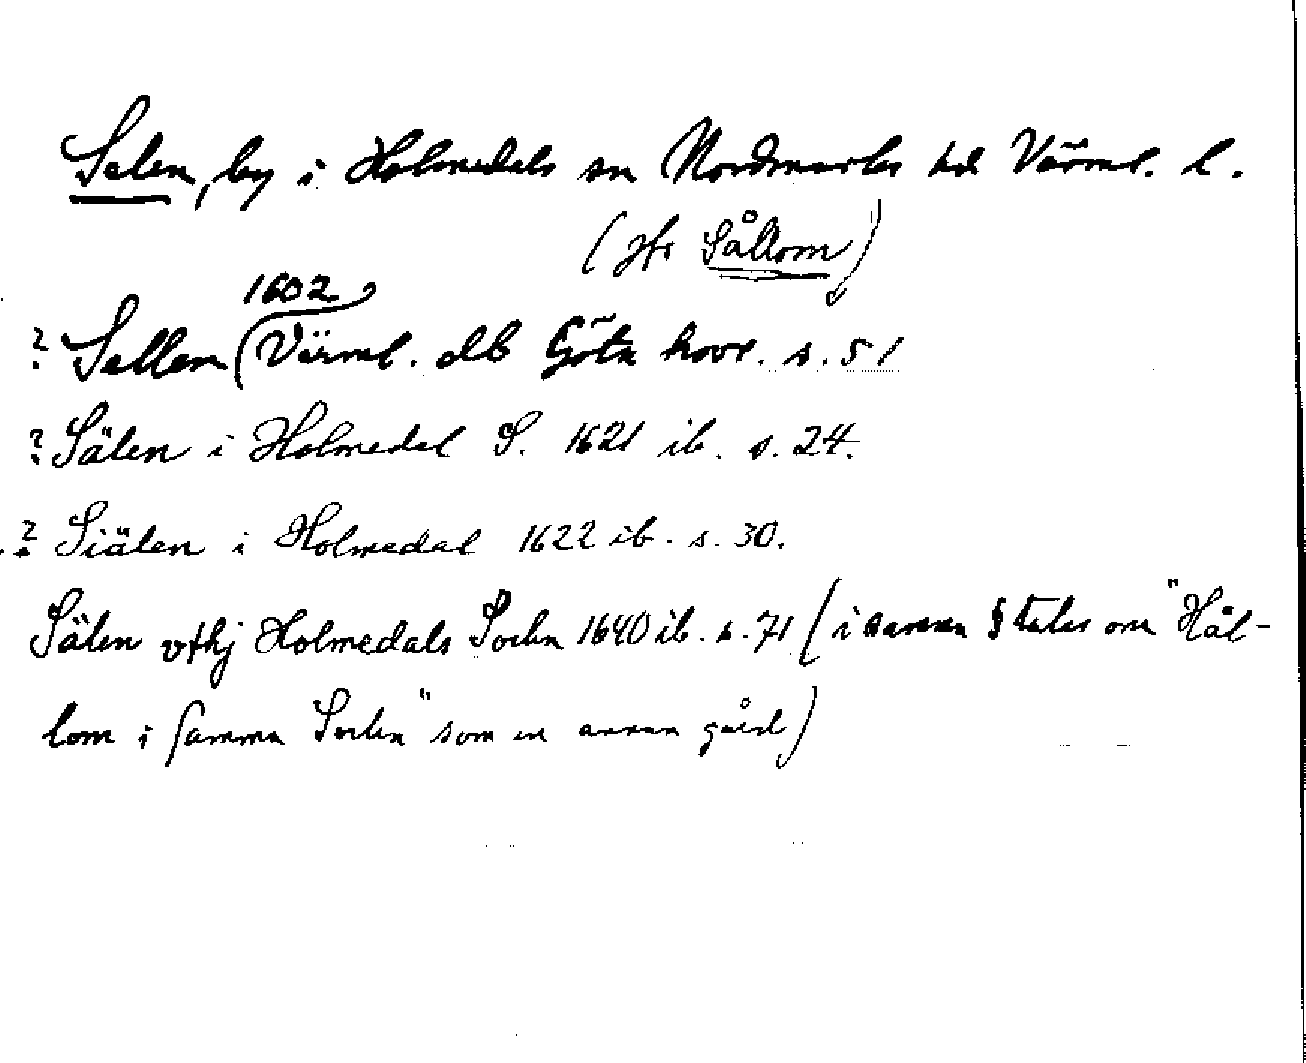 Selen, by i Holmedals sn Nordmarks hd Värml. l.
(Jfr Sållom)
1602
? Sellen (Värml. db Göta hovr. s. 51
? Sälen i Holmedal S. 1621 ib. s. 24.
? Siälen i Holmedal 1622 ib. s. 30.
Sälen vthj Holmedals Sochn 1640 ib. s. 71 (i samma § talas om "Hål-
lom i samma Sochn" som en annan gård)